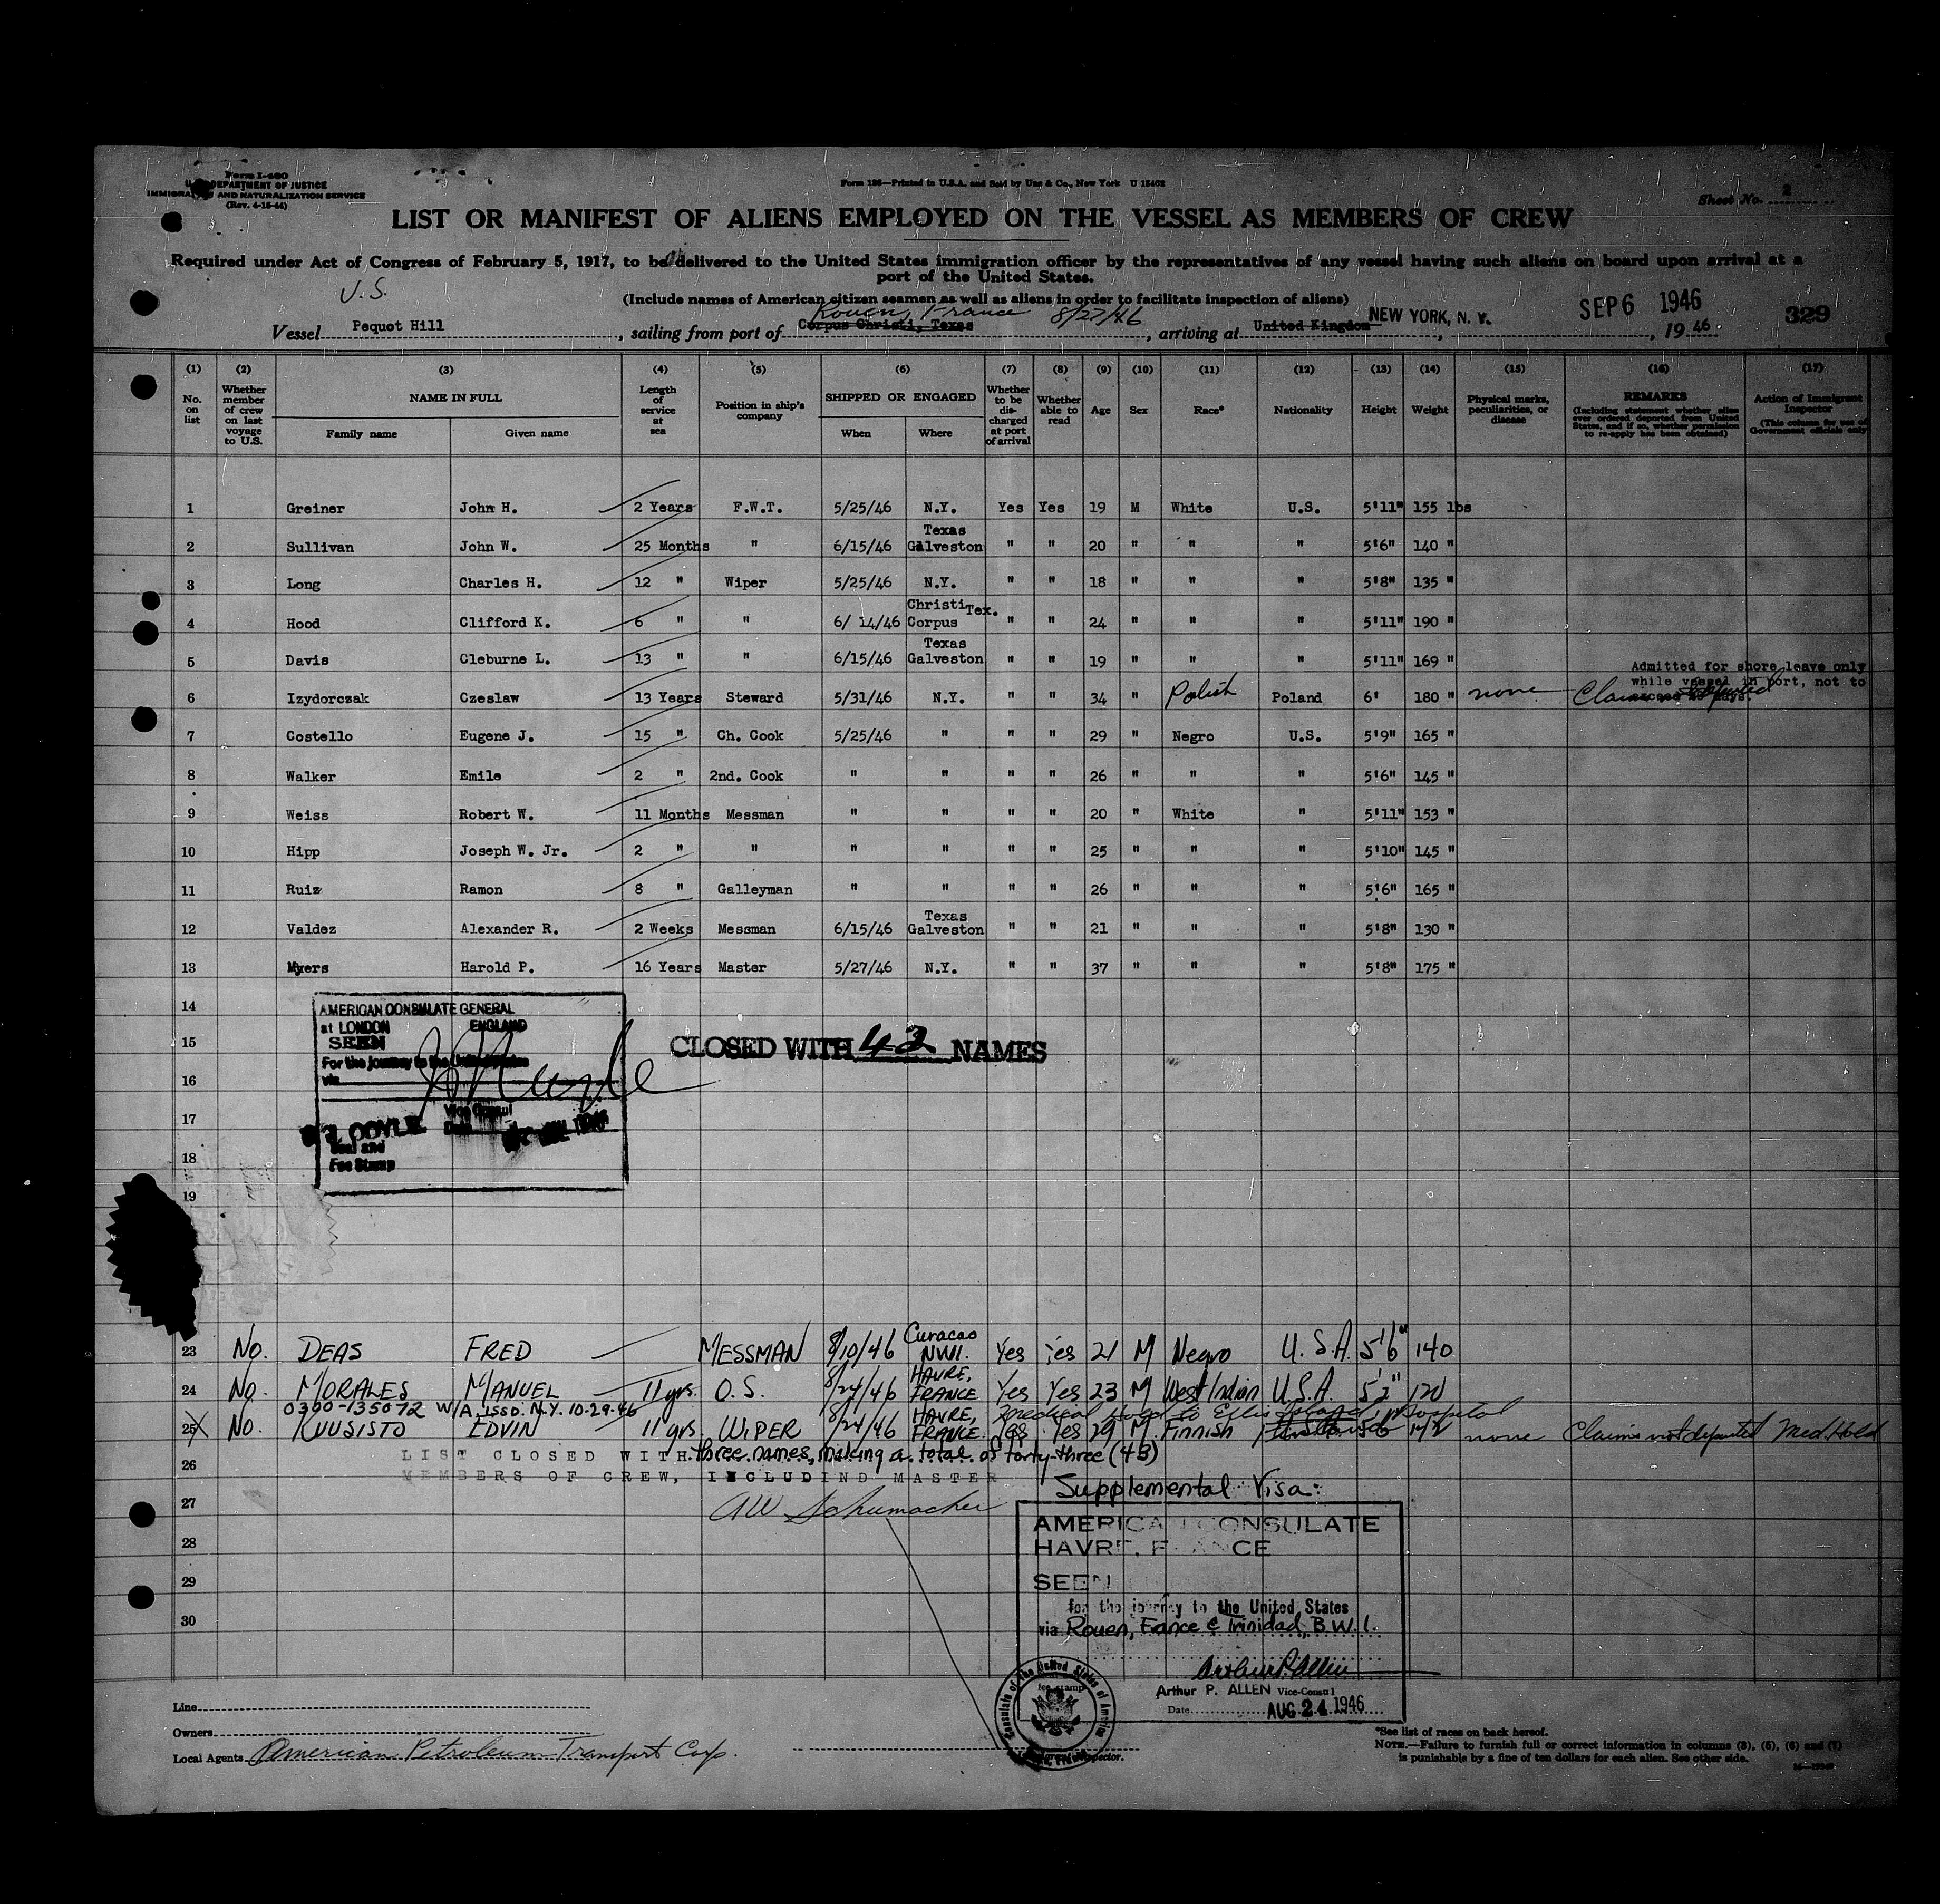 Form I-480
U. S. DEPARTMENT OF JUSTICE
IMMIGRATION AND NATURALIZATION SERVICE
(Rev. 4-15-44)
Form 136—Printed in U.S.A. and Sold by Unz & Co., New York U 15462
Sheet No. 2
LIST OR MANIFEST OF ALIENS EMPLOYED ON THE VESSEL AS MEMBERS OF CREW
Required under Act of Congress of February 5, 1917, to be delivered to the United States immigration officer by the representatives of any vessel having such aliens on board upon arrival at a
port of the United States.
U.S.
(Include names of American citizen seamen as well as aliens in order to facilitate inspection of aliens)
Rouen, France 8/27/46 NEW YORK, N. Y. SEP 6 1946 329
Vessel Pequot Hill, sailing from port of Corpus Christi, Texas, arriving at United Kingdom, 19 46
(1) (2) (3) (4) (5) (6) (7) (8) (9) (10) (11) (12) (13) (14) (15) (16) (17)
No. on list
Whether member of crew on last voyage to U.S.
NAME IN FULL
Family name Given name
Length of service at sea
Position in ship's company
SHIPPED OR ENGAGED
When Where
Whether to be discharged at port of arrival
Whether able to read
Age Sex Race* Nationality Height Weight
Physical marks, peculiarities, or disease
REMARKS
(Including statement whether alien ever ordered deported from United States, and if so, whether permission to re-apply has been obtained)
Action of Immigrant Inspector
(This column for use of Government officials only
1 Greiner John H. 2 Years F.W.T. 5/25/46 N.Y. Yes Yes 19 M White U.S. 5'11" 155 lbs
2 Sullivan John W. 25 Months " 6/15/46 Texas Galveston " " 20 " " " 5'6" 140 "
3 Long Charles H. 12 " Wiper 5/25/46 N.Y. " " 18 " " " 5'8" 135 "
4 Hood Clifford K. 6 " " 6/14/46 Christi Tex. Corpus " " 24 " " " 5'11" 190 "
5 Davis Cleburne L. 13 " " 6/15/46 Texas Galveston " " 19 " " " 5'11" 169 "
Admitted for shore leave only
while vessel in port, not to
exceed 29 days.
6 Izydorczak Czeslaw 13 Years Steward 5/31/46 N.Y. " " 34 " Polish Poland 6' 180 " none Claims not deported
7 Costello Eugene J. 15 " Ch. Cook 5/25/46 " " " 29 " Negro U.S. 5'9" 165 "
8 Walker Emile 2 " 2nd. Cook " " " " 26 " " " 5'6" 145 "
9 Weiss Robert W. 11 Months Messman " " " " 20 " White " 5'11" 153 "
10 Hipp Joseph W. Jr. 2 " " " " " " 25 " " " 5'10" 145 "
11 Ruiz Ramon 8 " Galleyman " " " " 26 " " " 5'6" 165 "
12 Valdez Alexander R. 2 Weeks Messman 6/15/46 Texas Galveston " " 21 " " " 5'8" 130 "
13 Myers Harold P. 16 Years Master 5/27/46 N.Y. " " 37 " " " 5'8" 175 "
14
15
16
17
18
19
AMERICAN CONSULATE GENERAL
at LONDON ENGLAND
SEEN
For the journey to the United States
via
Vice Consul
DOYLE Date 1946
Seal and
Fee Stamp
CLOSED WITH 42 NAMES
23 No. DEAS FRED MESSMAN 8/10/46 Curacao NWI. Yes yes 21 M Negro U.S.A. 5'6" 140
24 No. MORALES MANUEL 11 yrs. O.S. 8/24/46 HAVRE, FRANCE Yes Yes 23 M West Indian U.S.A. 5'2" 120
0300-135072 W/A issd. N.Y. 10-29-46 Medical Hold to Ellis Island Hospital
25 No. KUUSISTO EDVIN 11 yrs. WIPER 8/24/46 HAVRE, FRANCE Yes Yes 29 M Finnish 5'6 142 none Claims not deported Med. Hold
26 LIST CLOSED WITH three names, making a total of forty-three (43)
MEMBERS OF CREW, INCLUDIND MASTER
27 AW Schumacher
28
29
30
Supplemental Visa:
AMERICAN CONSULATE
HAVRE, FRANCE
SEEN
for the journey to the United States
via Rouen, France & Trinidad, B.W.I.
Arthur P. Allen
Arthur P. ALLEN Vice-Consul
Date AUG 24 1946
Consulate of the United States of America
fee stamp
Line
Owners
Local Agents American Petroleum Transport Corp.
Inspector.
*See list of races on back hereof.
NOTE.—Failure to furnish full or correct information in columns (3), (5), (6) and (7)
is punishable by a fine of ten dollars for each alien. See other side.